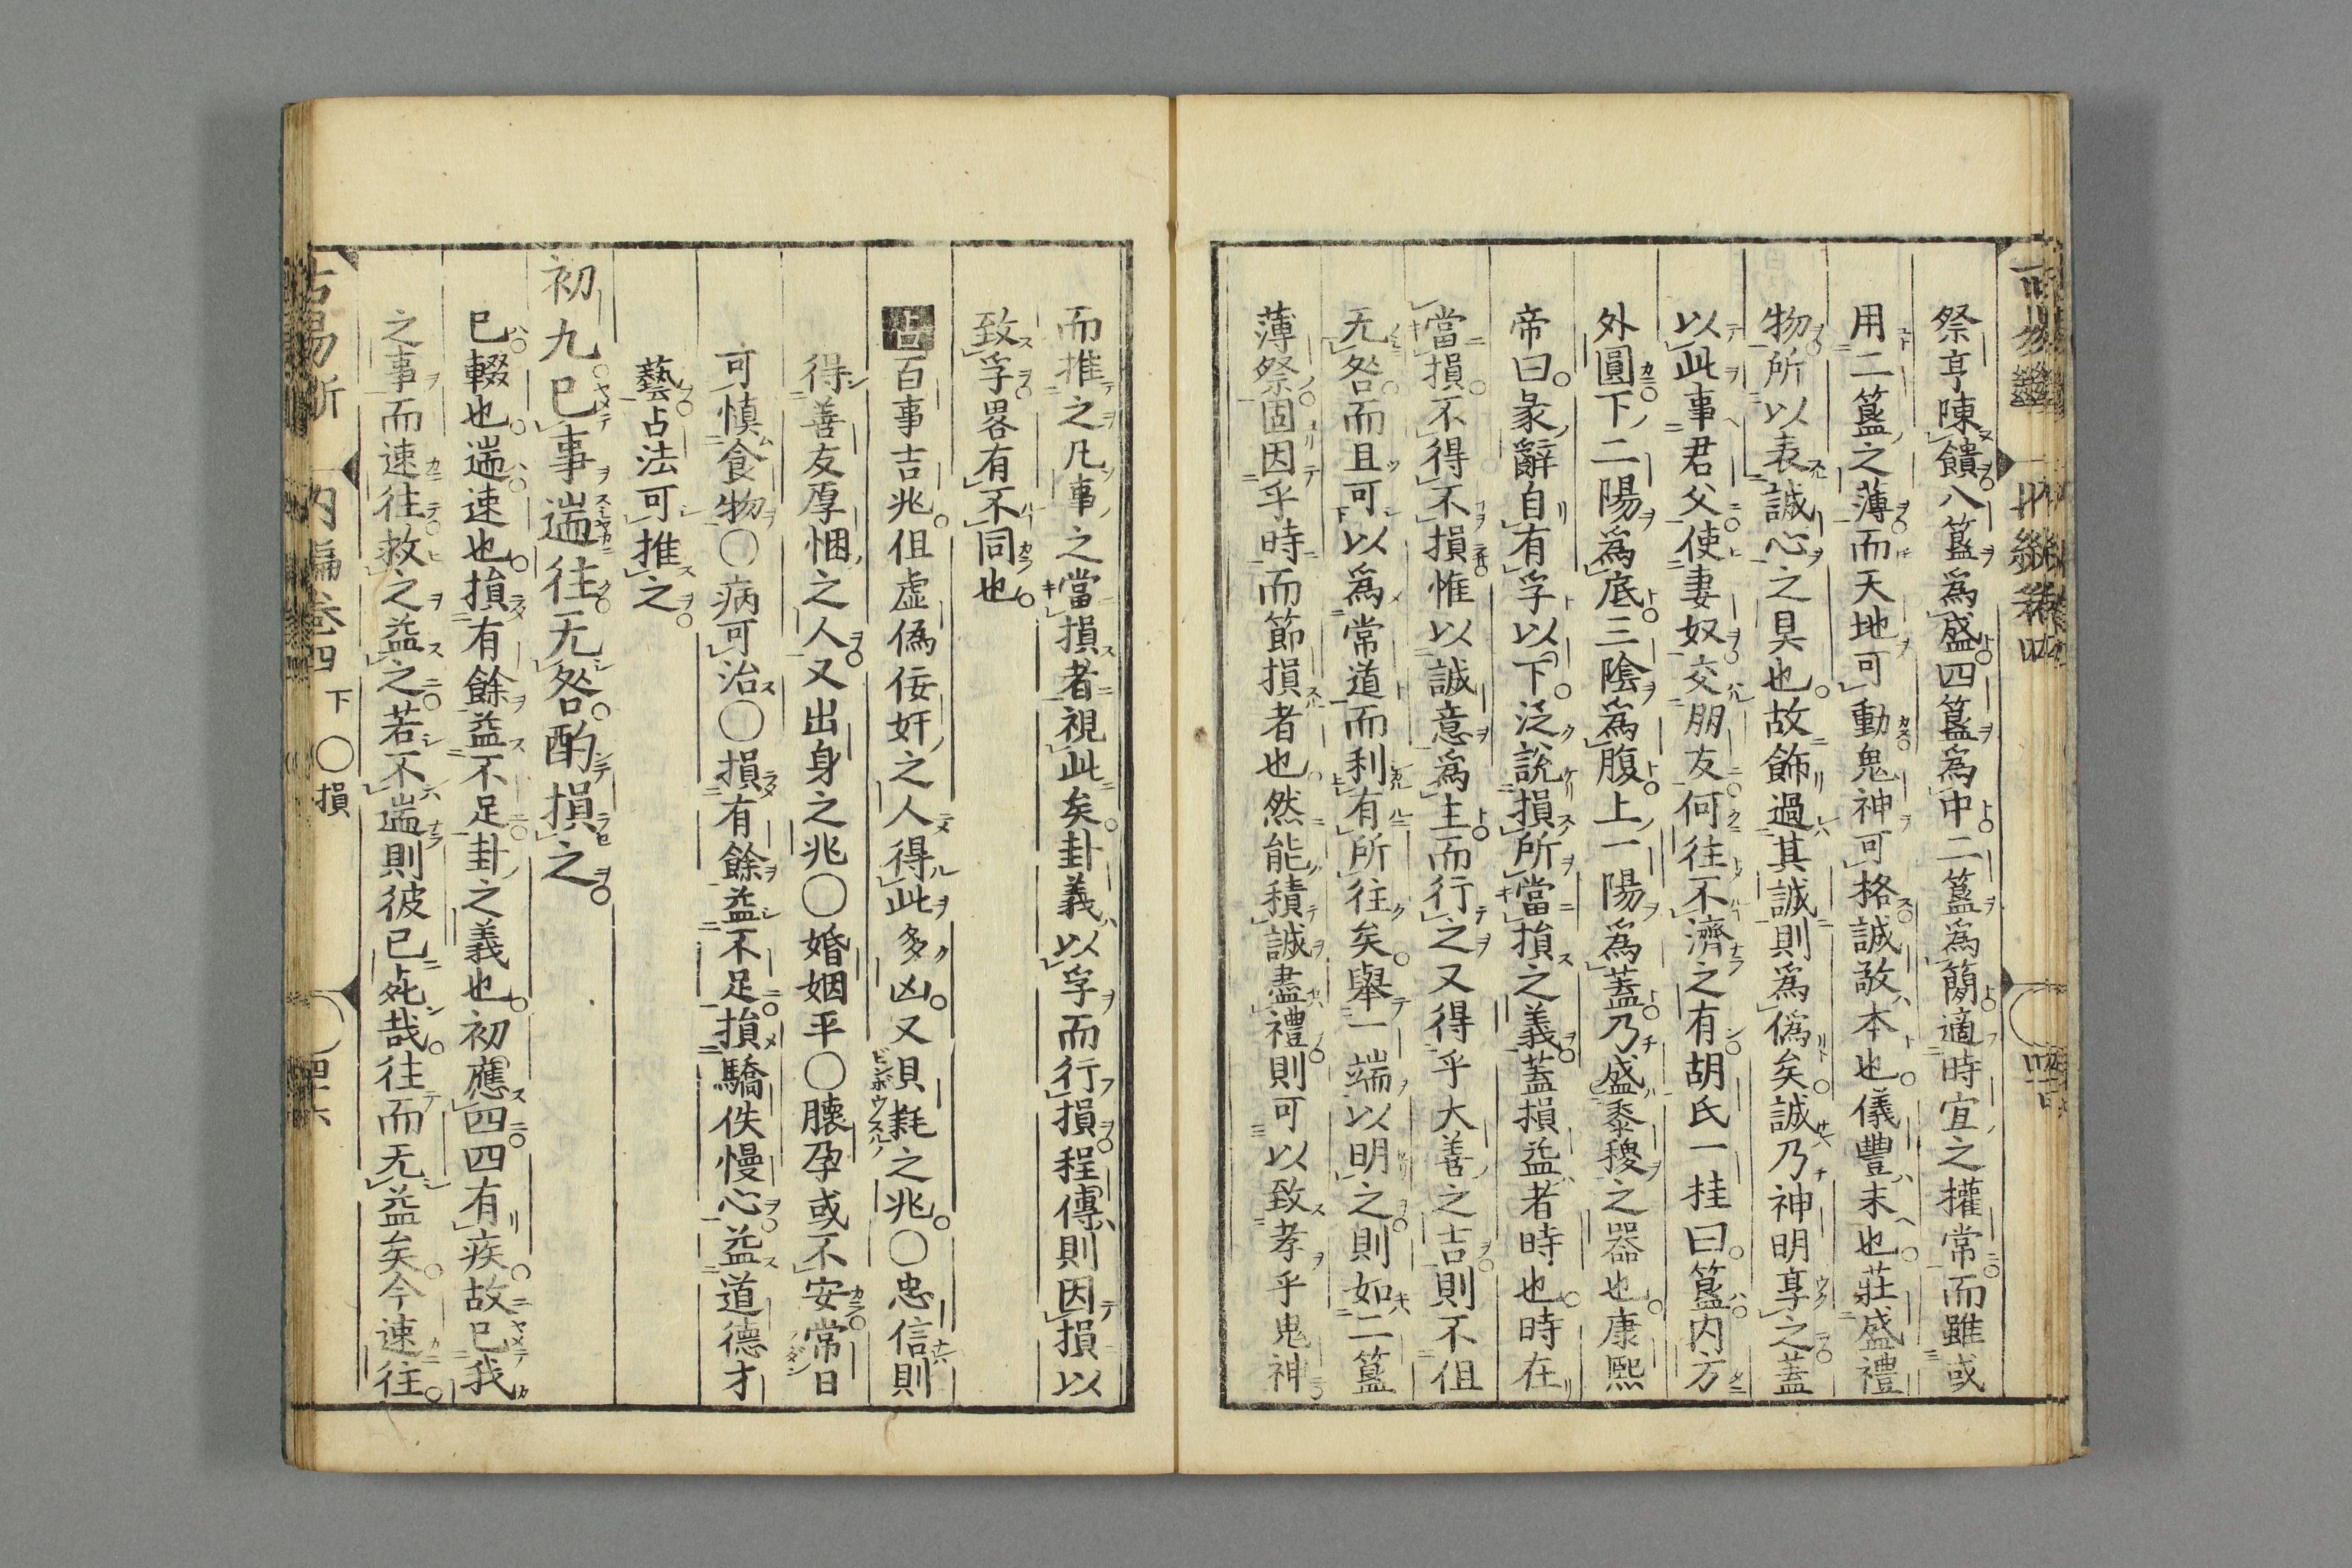 祭亨陳饋八簋爲盛四簋爲中二簋爲簡適時宜之權常而雖或
用二簋之薄而天地可動鬼神可格誠敬本也儀豐末也莊盛禮
物所以表誠心之具也故飾過其誠則爲偽矣誠乃神明享之蓋
以此事君父使妻奴交朋友何往不濟之有胡氏一桂曰簋内方
外圓下二陽爲底三陰爲腹上一陽爲蓋乃盛黍稷之器也康熙
帝曰彖辭自有孚以下泛說損所當損之義蓋損益者時也時在
當損不得不損惟以誠意爲主而行之又得乎大善之吉則不但
无咎而且可以爲常道而利有所往矣舉一端以明之則如二簋
薄祭固因乎時而節損者也然能積誠盡禮則可以致孝乎鬼神
而推之凡事之當損者視此矣卦義以孚而行損程傳則因損以
致孚畧有不同也
占百事吉兆但虛偽佞奸之人得此多凶又貝耗之兆〇忠信則
得善友厚悃之人又出身之兆〇婚姻平〇懷孕或不安常日
可慎食物〇病可治〇損有餘益不足損驕佚慢心益道德才
藝占法可推之
初九已事遄往无咎酌損之
已輟也遄速也損有餘益不足卦之義也初應四四有疾故已我
之事而速往救之益之若不遄則彼已死哉往而无益矣今速往
古易斷 内編卷四 下 〇損 四六